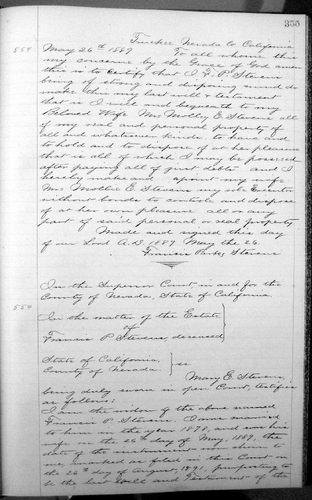 355
Truckee Nevada Co California
554
May 26th 1889 To all whome this
may concearne by the Grace of God amen
this is to certify that I F. P. Stevens
being of strong and disposing mind do
make this my last will & testament
that is I will and bequeath to my
Beloved Wife Mrs Mollie E. Stevens all
of my real and personal property of
all and whatsoever kinde to have and
to hold and to dispose of at her pleasure
that is all of which I may be possessed
after paying all of just debts and I
hereby make and apoint my wife
Mrs Mollie E. Stevens my sole Executor
without bonds to controle and dispose
of at her own pleasure all or any
part of said personal or real property
Made and signed this day
of our Lord A.D. 1889 May the 26.
Francis Parks Stevens
In the Superior Court in and for the
County of Nevada, State of California.
554
In the matter of the Estate
of
Francis P. Stevens, deceased
State of California,
County of Nevada. ss
Mary E. Stevens,
being duly sworn in open Court, testifies
as follows:
I am the widow of the above named
Francis P. Stevens. I was married
to him in the year 1878, and was his
wife on the 26th day of May, 1889, the
date of the instrument now shown to
me, marked as filed in this Court on
the day of August, 1891, purporting to
be the last Will and Testament of the